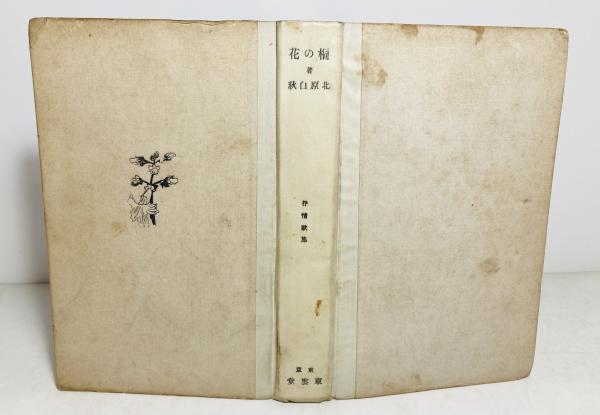 桐の花
著
北原白秋
抒情歌集
東京
東雲堂